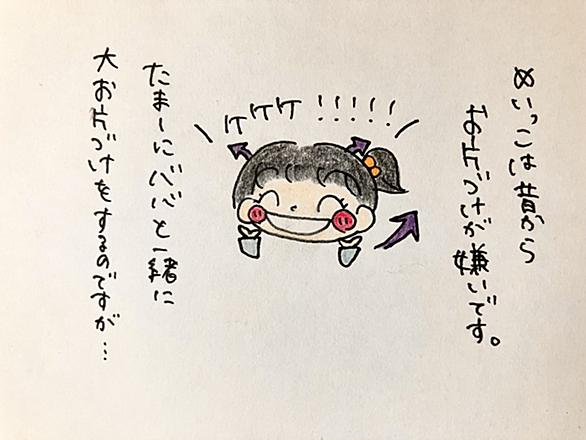 めいっこは昔から
お片づけが嫌いです。
ケケケ!!!!!
たまーにババと一緒に
大お片づけをするのですが…